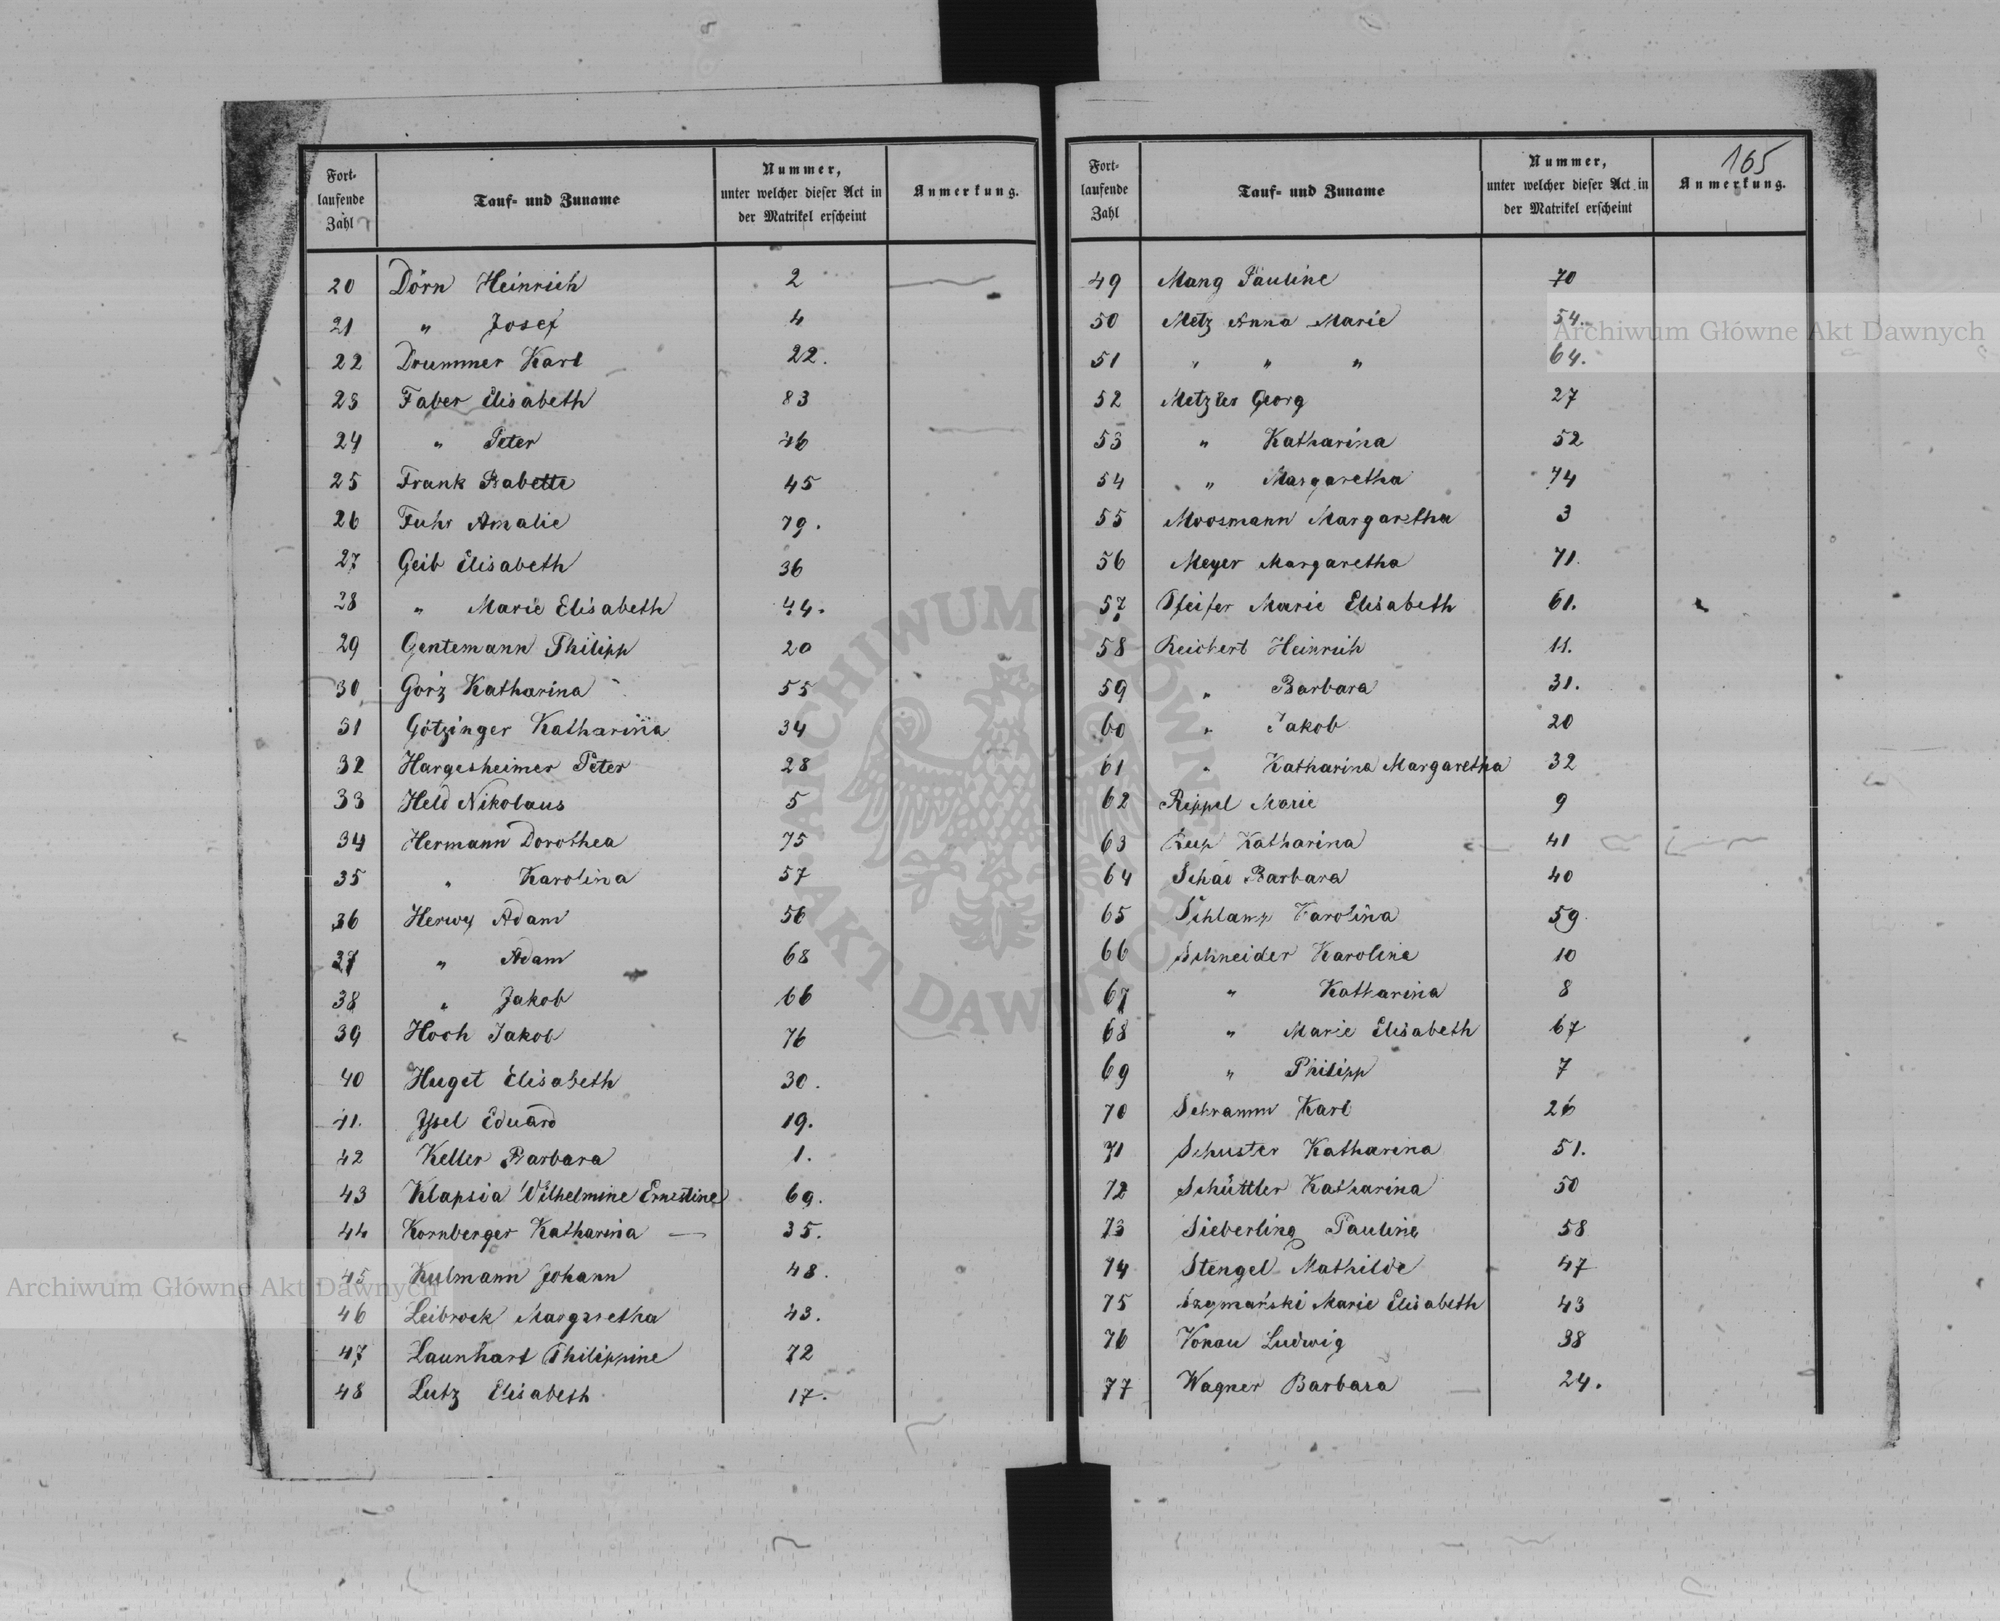 165
Fort-
laufende
Zahl
Tauf- und Zuname
Nummer,
unter welcher dieser Act in
der Matrikel erscheint
Anmerkung.
20 Dörn Heinrich 2
21 " Josef 4
22 Drummer Karl 22.
23 Faber Elisabeth 83
24 " Peter 46
25 Frank Babette 45
26 Fuhr Amalie 79.
27 Geib Elisabeth 36
28 " Marie Elisabeth 44.
29 Gentemann Philipp 20
30 Görz Katharina 55
31 Götzinger Katharina 34
32 Hargesheimer Peter 28
33 Held Nikolaus 5
34 Hermann Dorothea 75
35 " Karolina 57
36 Herwy Adam 56
37 " Adam 68
38 " Jakob 66
39 Hoch Jakob 76
40 Huget Elisabeth 30.
41. Issel Eduard 19.
42 Keller Barbara 1.
43 Klapsia Wilhelmine Ernestine 69.
44 Kornberger Katharina 35.
45 Kulmann Johann 48.
46 Leibrock Margaretha 43.
47 Launhart Philippine 72
48 Lutz Elisabeth 17.
Fort-
laufende
Zahl
Tauf- und Zuname
Nummer,
unter welcher dieser Act in
der Matrikel erscheint
Anmerkung.
49 Mang Pauline 70
50 Metz Anna Marie 54.
51 " " " 64.
52 Metzler Georg 27
53 " Katharina 52
54 " Margaretha 74
55 Moosmann Margaretha 3
56 Meyer Margaretha 71.
57 Pfeifer Marie Elisabeth 61.
58 Reichert Heinrich 11.
59 " Barbara 31.
60 " Jakob 20
61 " Katharina Margaretha 32
62 Rippel Marie 9
63 Rup Katharina 41
64 Schad Barbara 40
65 Schlamp Karolina 59.
66 Schneider Karoline 10
67 " Katharina 8
68 " Marie Elisabeth 67
69 " Philipp 7
70 Schramm Karl 26
71 Schuster Katharina 51.
72 Schüttler Katharina 50
73 Sieberling Pauline 58
74 Stengel Mathilde 47
75 Szymański Marie Elisabeth 43
76 Vonau Ludwig 38
77 Wagner Barbara 24.
Archiwum Główne Akt Dawnych
Archiwum Główne Akt Dawnych
ARCHIWUM GŁÓWNE AKT DAWNYCH